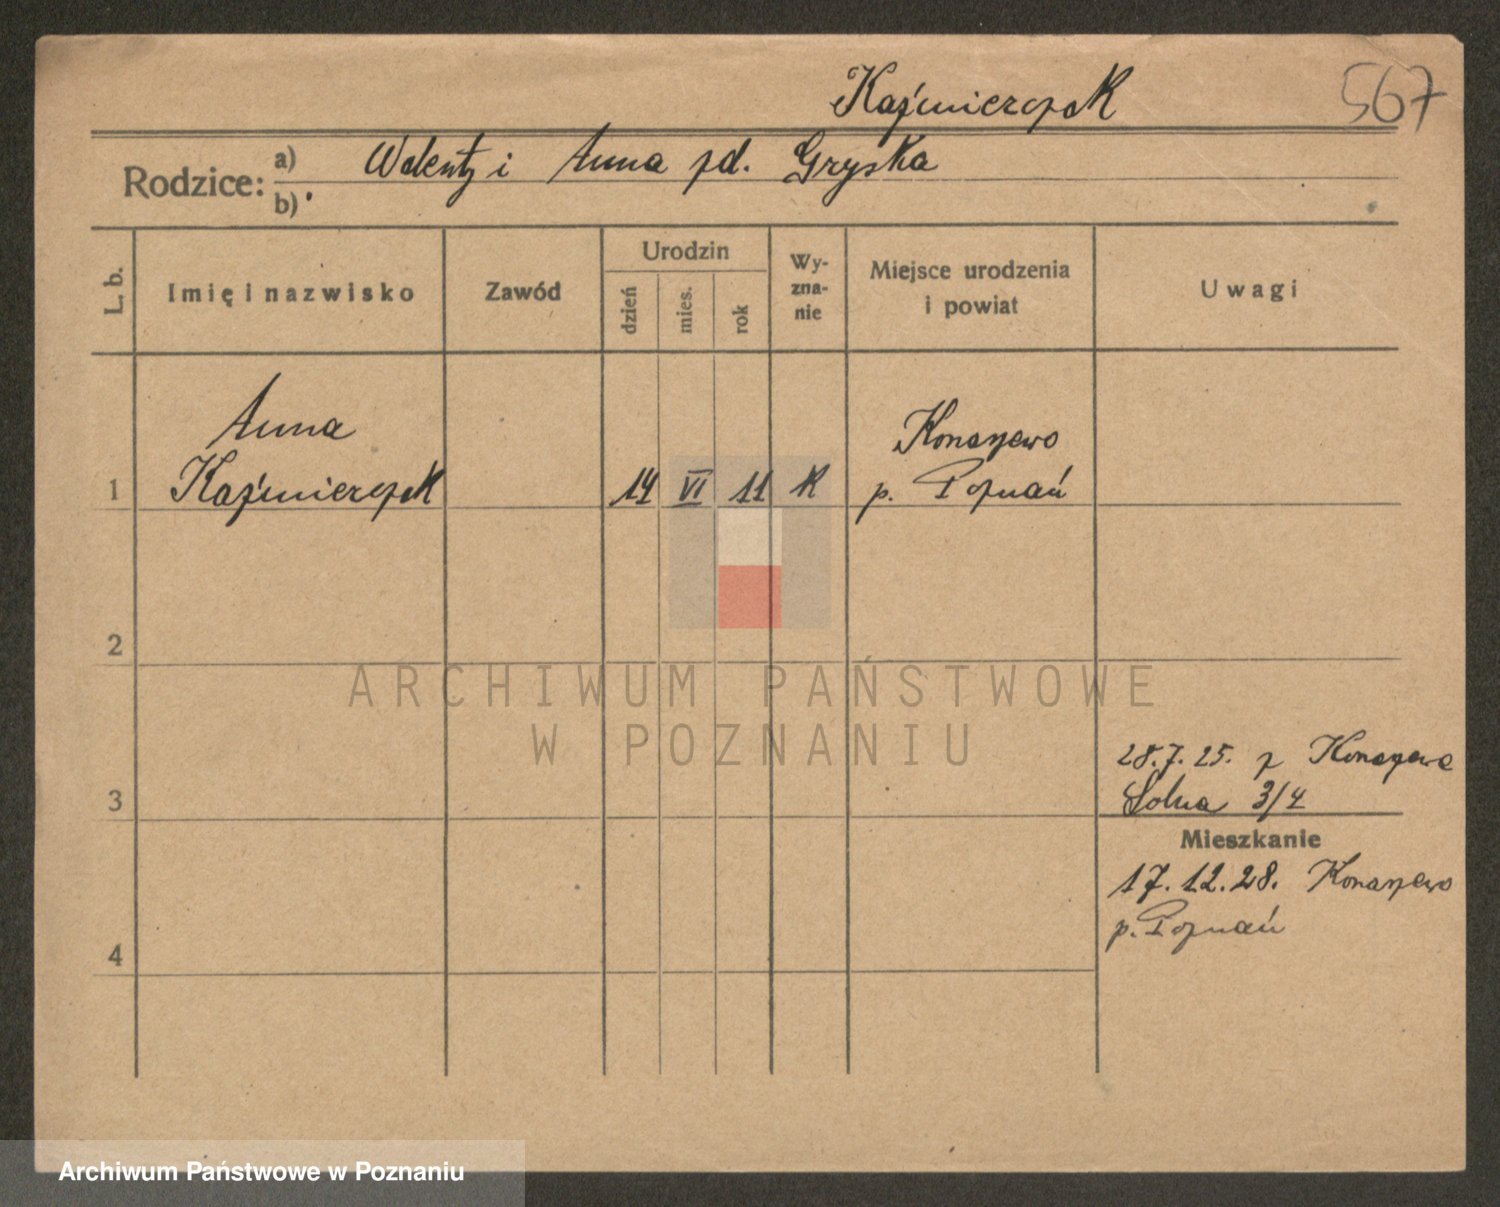 Kaźmierczak
567
Rodzice: a) Walenty i Anna zd. Gryska
b)
L. b.
Imię i nazwisko
Zawód
Urodzin
dzień
mies.
rok
Wy-
zna-
nie
Miejsce urodzenia
i powiat
Uwagi
Anna
1 Kaźmierczak 14 VI 11 K
Konarzewo
p. Poznań
2
ARCHIWUM PAŃSTWOWE
W POZNANIU
28.7.25. z Konarzewa
3 Solna 3/4
Mieszkanie
17.12.28. Konarzewo
p. Poznań
4
Archiwum Państwowe w Poznaniu